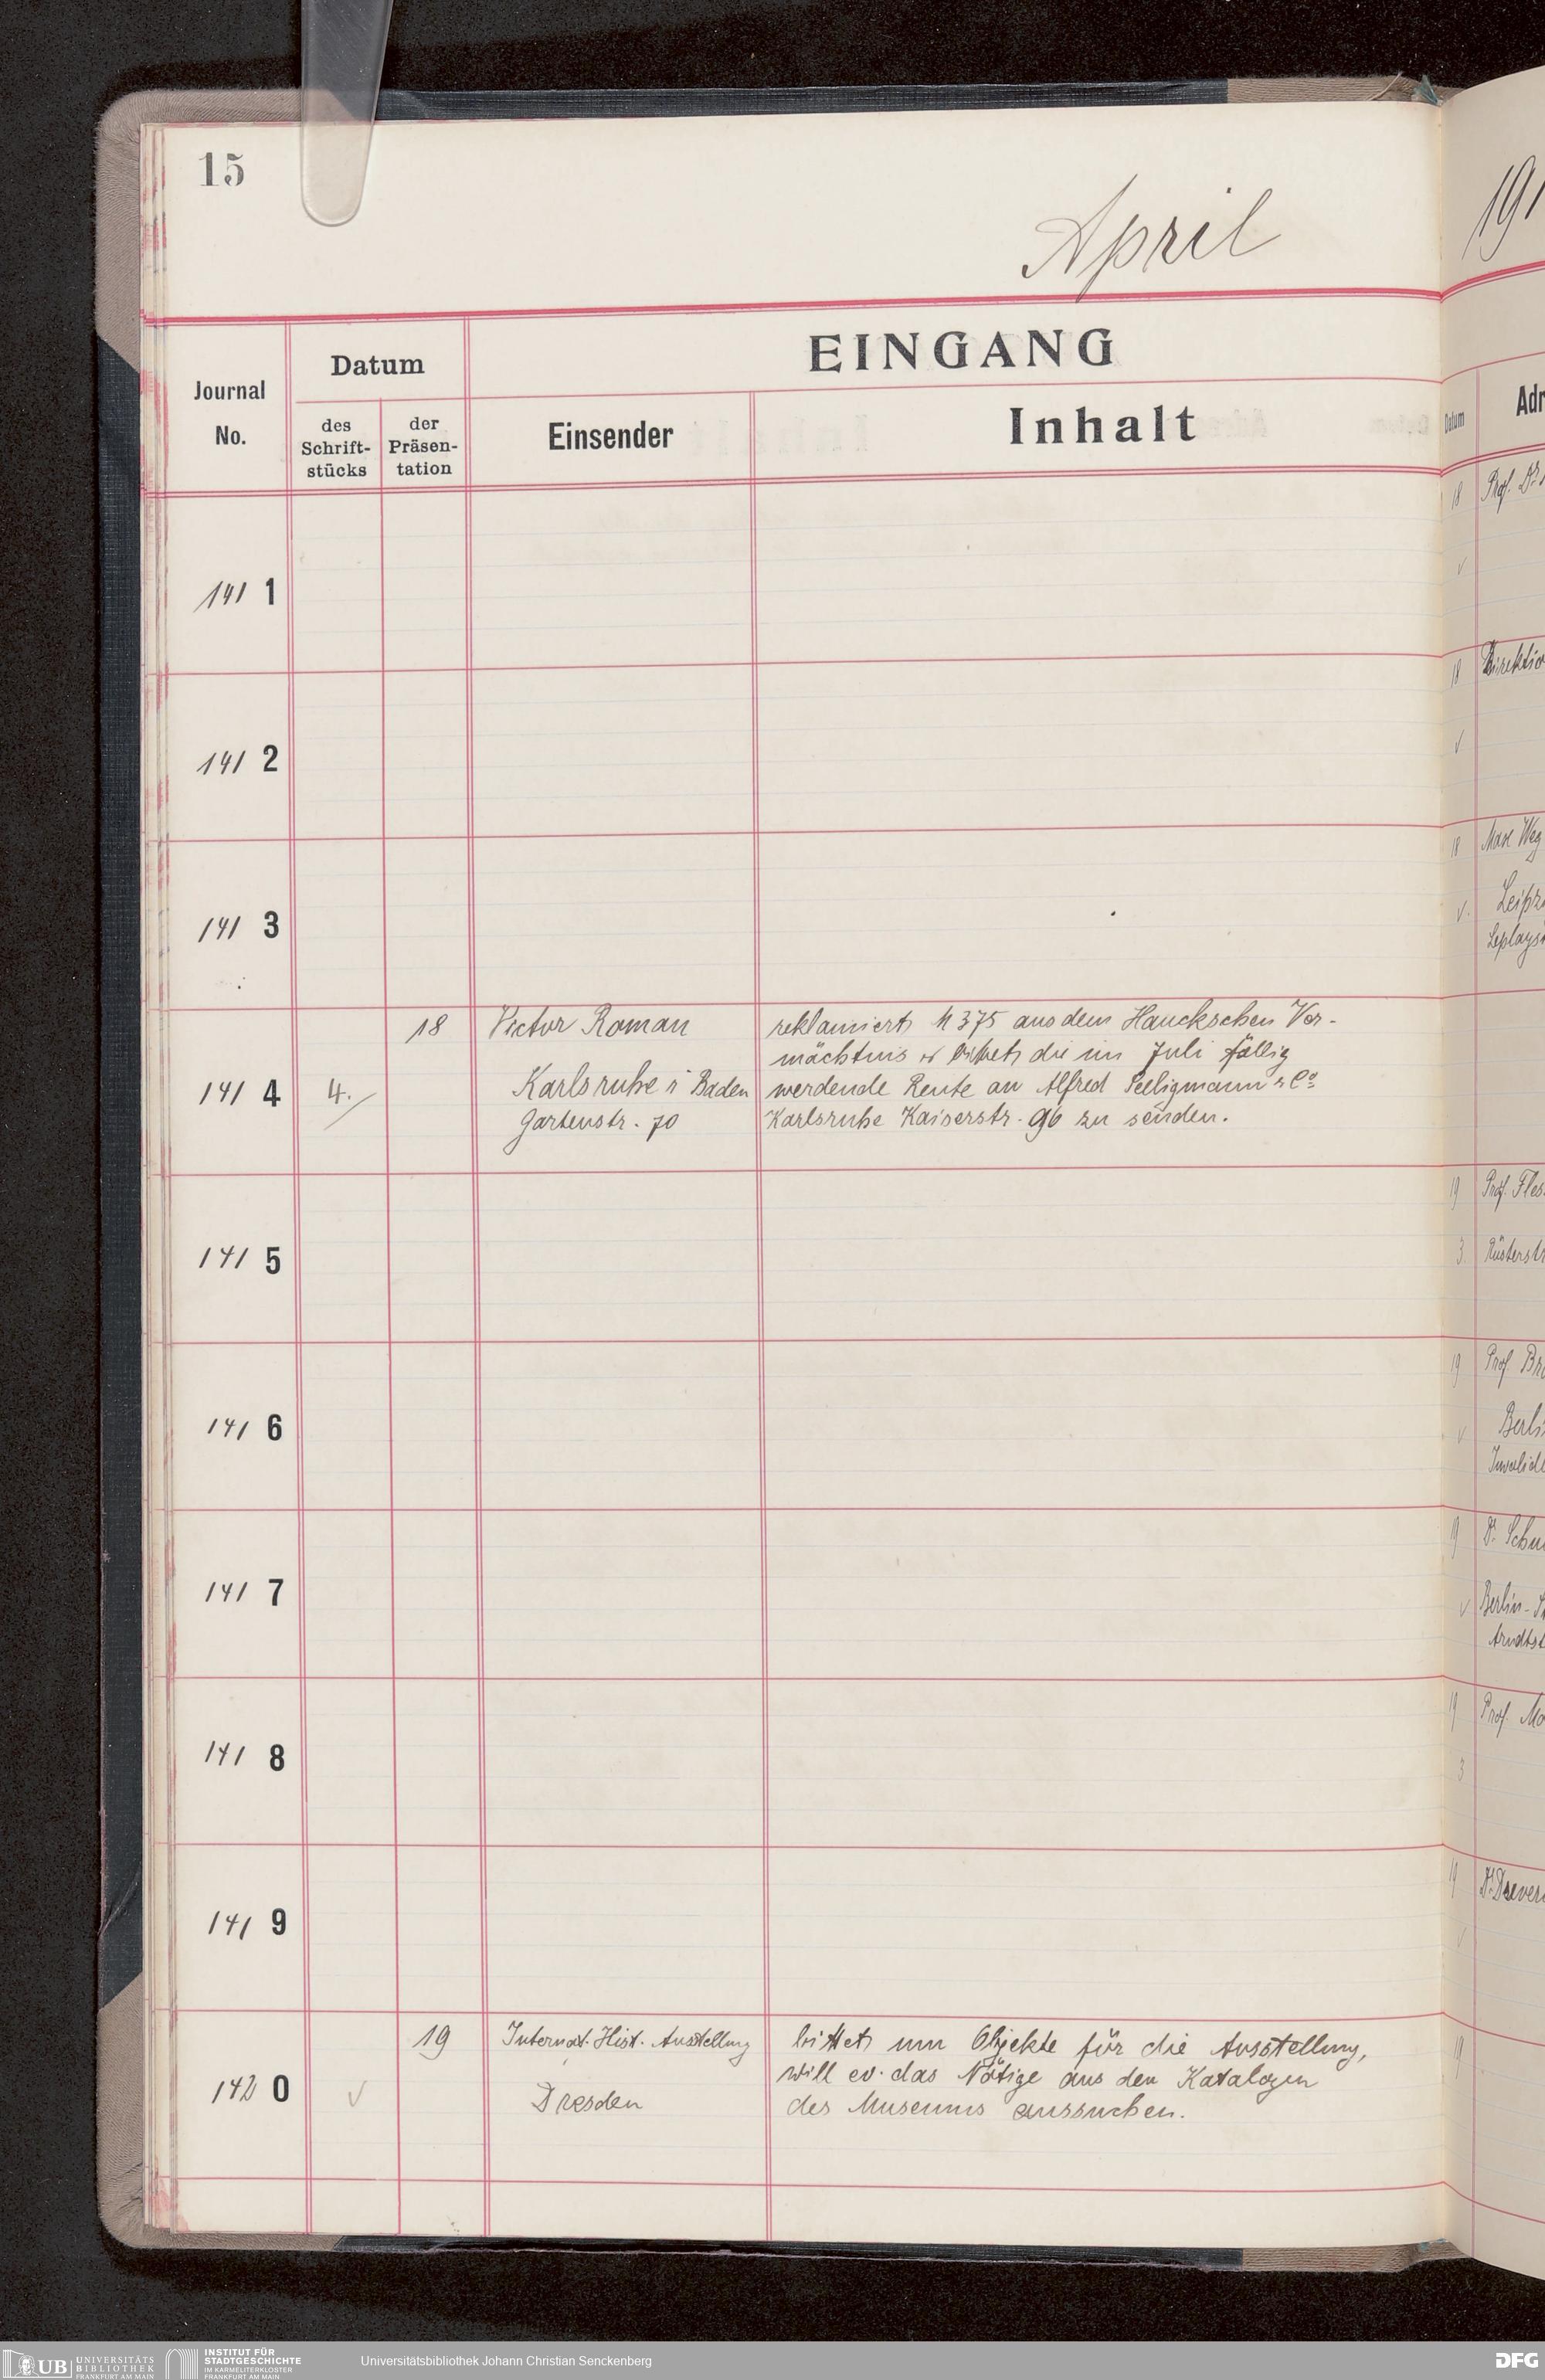 15
April
191
Journal
No.
Datum
des
Schrift-
stücks
der
Präsen-
tation
EINGANG
Einsender
Inhalt
Datum
Adr
18 Prof. Dr.
141 1
18 Direktio
141 2
18 Max Weg
Leipz
141 3
18 Victor Roman reklamiert M 375 aus dem Hauckschen Ver-
mächtnis u bittet die im Juli fällig
141 4 4. Karlsruhe i Baden werdende Rente an Alfred Seeligmann & Co
Gartenstr. 70 Karlsruhe Kaiserstr. 96 zu senden.
19 Prof. Fles
141 5 3
19 Prof Br
141 6 Berli
Invalide
19 Dr. Schu
141 7 Berlin-
Arndtst
19 Prof. Mo
141 8 3
19 Dr. Drever
141 9
19 Internat. Hist. Ausstellung bittet um Objekte für die Ausstellung,
will ev. das Nötige aus den Katalogen
142 0 Dresden des Museums aussuchen.
19
UB UNIVERSITÄTS
BIBLIOTHEK
FRANKFURT AM MAIN
INSTITUT FÜR
STADTGESCHICHTE
IM KARMELITERKLOSTER
FRANKFURT AM MAIN
Universitätsbibliothek Johann Christian Senckenberg
DFG